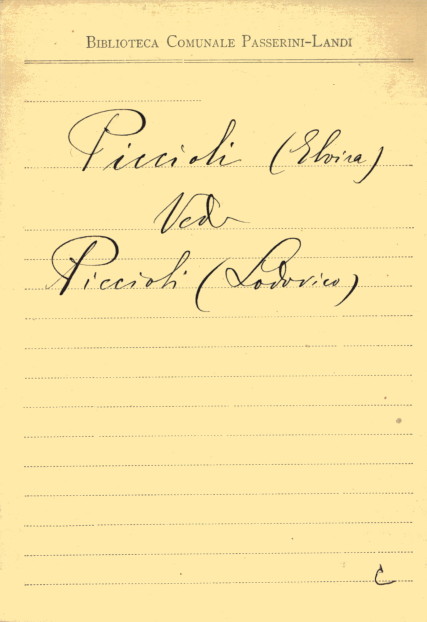 Biblioteca Comunale Passerini-Landi
Piccioli (Elvira)
Vedi
Piccioli (Lodovico)
C